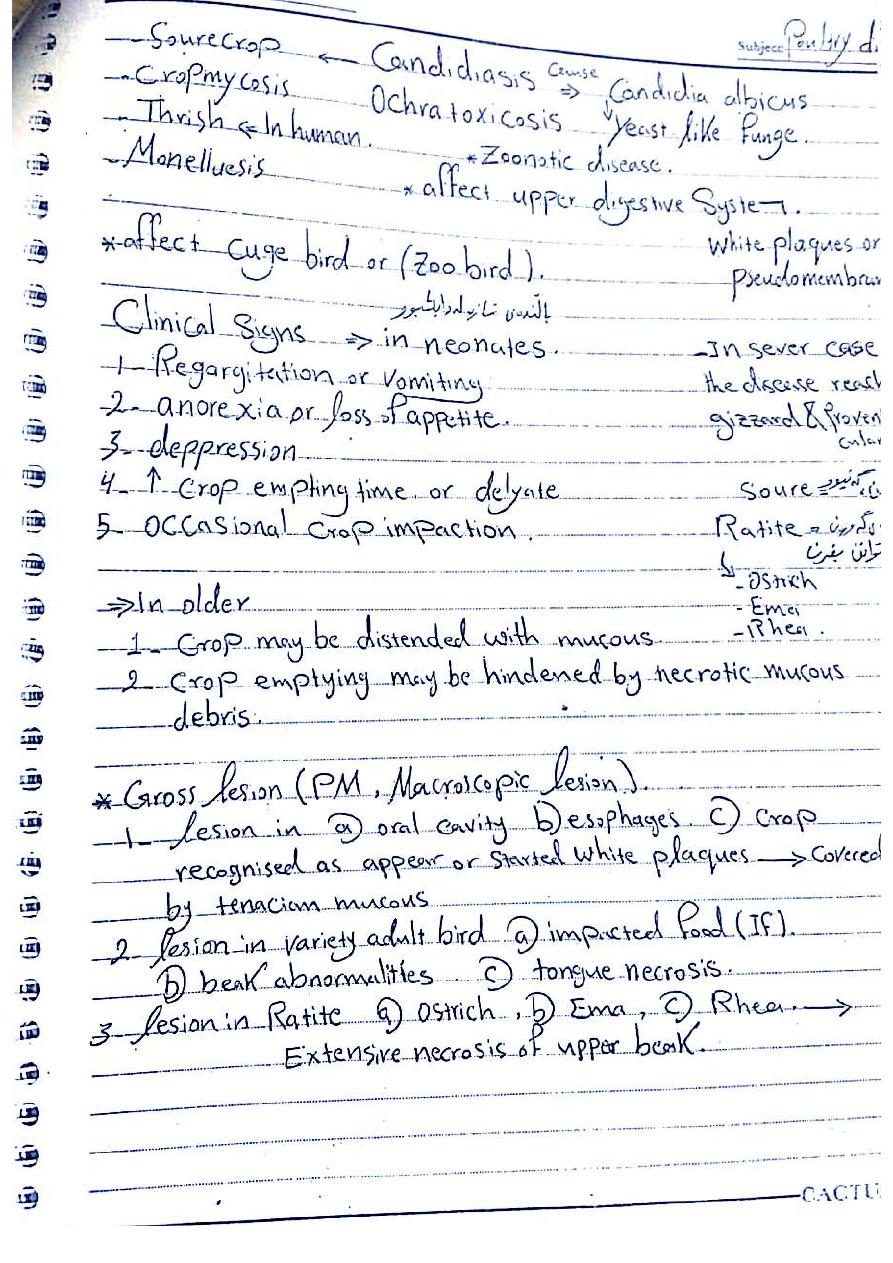 Subject: Poultry di
- Sourecrop ← Candidiasis Cause ⇒ Candidia albicus
- Cropmycosis Ochratoxicosis ↓ Yeast like Funge.
- Thrish ⇐ In human. * Zoonotic disease.
- Monelluesis * affect upper digestive System.
* affect cuge bird or (Zoo bird). White plaques or
pseudomembran
Clinical Signs ⇒ in neonates. - In sever case
1- Regargitation or Vomiting the disease reach
2- anorexia or loss of appetite. gizzard & Proven
cular
3- deppression
4- ↑ Crop empting time or delyate Soure =
5- occasional Crop impaction. Ratite =
↓ - Ostrich
⇒ In older - Ema
1- Crop may be distended with mucous - Rhea.
2- Crop emptying may be hindened by necrotic mucous
debris.
* Gross lesion (PM, Macroscopic lesion).
1- lesion in a) oral cavity b) esophages. c) Crop
recognised as appear or Started White plaques → Covered
by tenacian mucous
2- lesion in variety adult bird a) impacted Food (IF).
b) beak abnormalities c) tongue necrosis.
3- lesion in Ratite a) Ostrich, b) Ema, c) Rhea. →
Extensive necrosis of upper beak.
CACTU